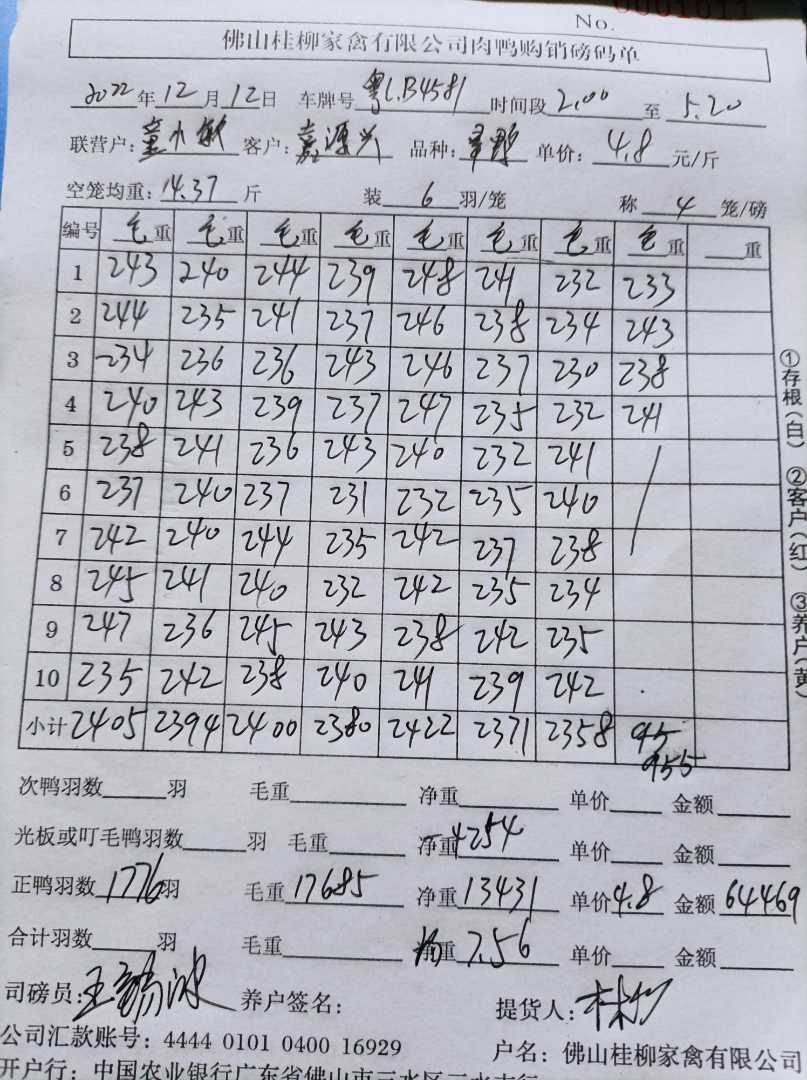 No. 0001011
佛山桂柳家禽有限公司肉鸭购销磅码单
2022年12月12日 车牌号 粤L.B4581 时间段 2.00 至 5.20
联营户: 童小敏 客户: 嘉源兴 品种: 单价: 4.8 元/斤
空笼均重: 14.37 斤 装 6 羽/笼 称 4 笼/磅
编号 毛重 毛重 毛重 毛重 毛重 毛重 毛重 毛重 重
1 243 240 244 239 248 241 232 233
2 244 235 241 237 246 238 234 243
3 234 236 236 243 246 237 230 238
4 240 243 239 237 247 235 232 241
5 238 241 236 243 240 232 241
6 237 240 237 231 232 235 240
7 242 240 244 235 242 237 238
8 245 241 240 232 242 235 234
9 247 236 245 243 238 242 235
10 235 242 238 240 241 239 242
小计 2405 2394 2400 2380 2422 2371 2358 95
955
次鸭羽数 羽 毛重 净重 单价 金额
光板或叮毛鸭羽数 羽 毛重 净重 -4254 单价 金额
正鸭羽数 1776 羽 毛重 17685 净重 13431 单价 4.8 金额 64469
合计羽数 羽 毛重 均重 7.56 单价 金额
司磅员: 养户签名: 提货人:
公司汇款账号: 4444 0101 0400 16929 户名: 佛山桂柳家禽有限公司
开户行: 中国农业银行广东省佛山市三水区三水支行
①存根(白) ②客户(红) ③养户(黄)